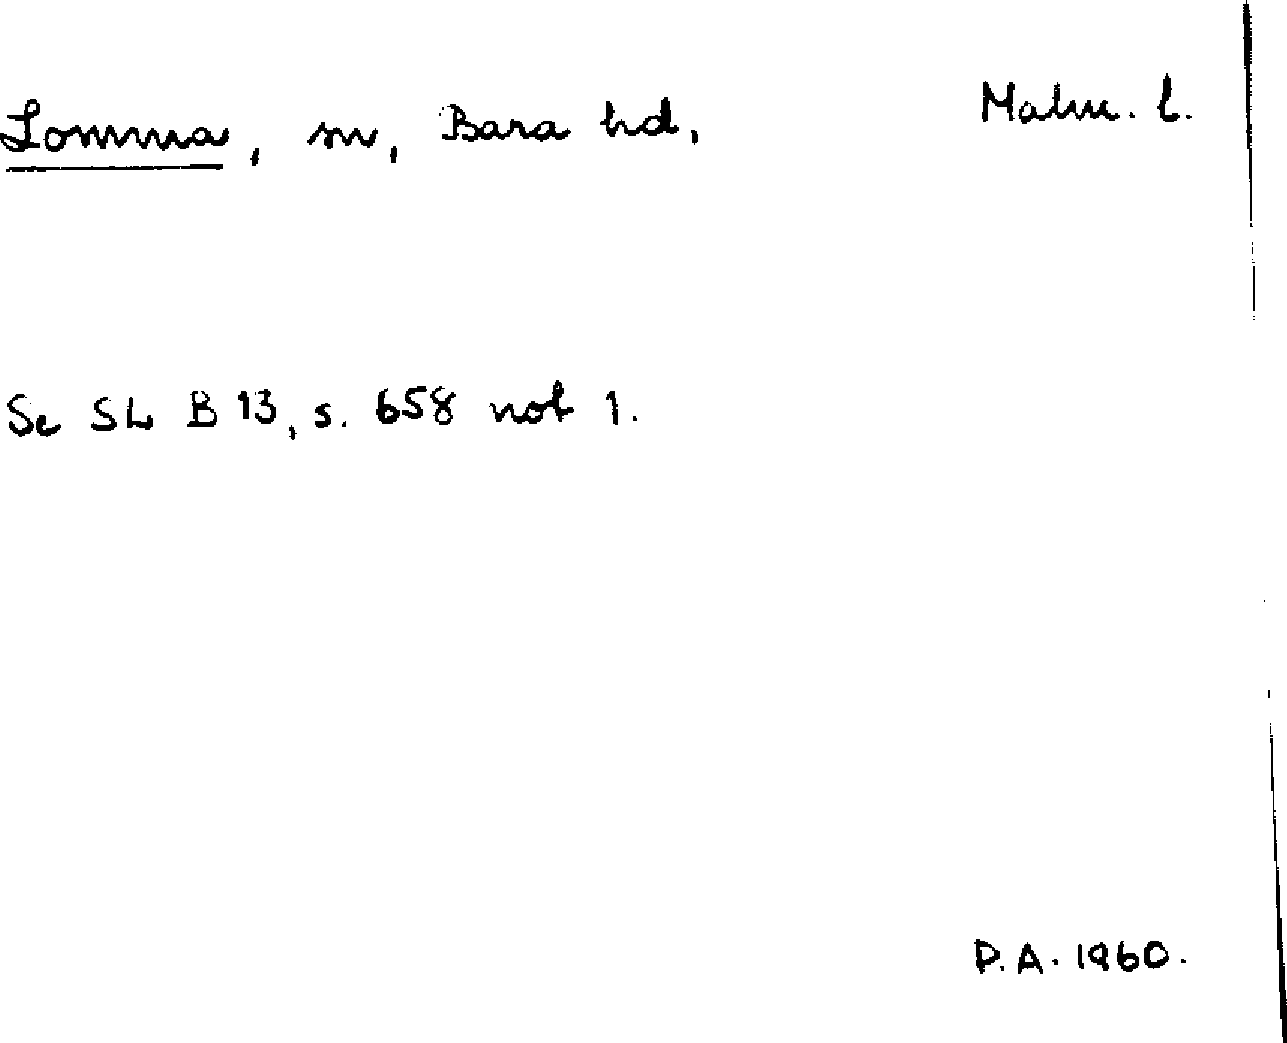 Lomma, sn, Bara hd, Malm. l.
Se SL B 13, s. 658 not 1.
P.A. 1960.